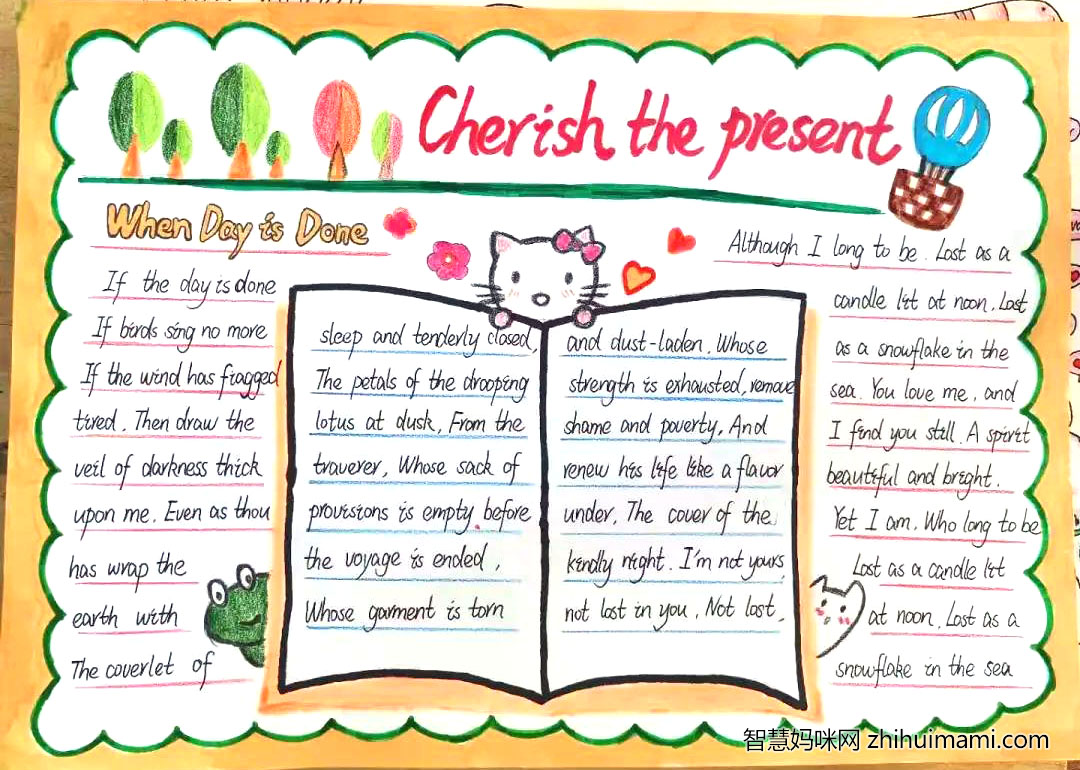 Cherish the present
When Day is Done
If the day is done
If birds sing no more
If the wind has fiagged
tired. Then draw the
veil of darkness thick
upon me. Even as thou
has wrap the
earth with
The coverlet of
sleep and tenderly closed,
The petals of the drooping
lotus at dusk, From the
traverer, Whose sack of
provisions is empty before
the voyage is ended,
Whose garment is torn
and dust-laden. Whose
strength is exhausted, remove
shame and poverty, And
renew his life like a flavor
under, The cover of the
kindly night. I'm not yours
not lost in you, Not lost,
Although I long to be. Lost as a
candle lit at noon, Lost
as a snowflake in the
sea. You love me, and
I find you still. A spirit
beautiful and bright.
Yet I am. Who long to be
Lost as a candle lit
at noon, Lost as a
snowflake in the sea
智慧妈咪网 zhihuimami.com